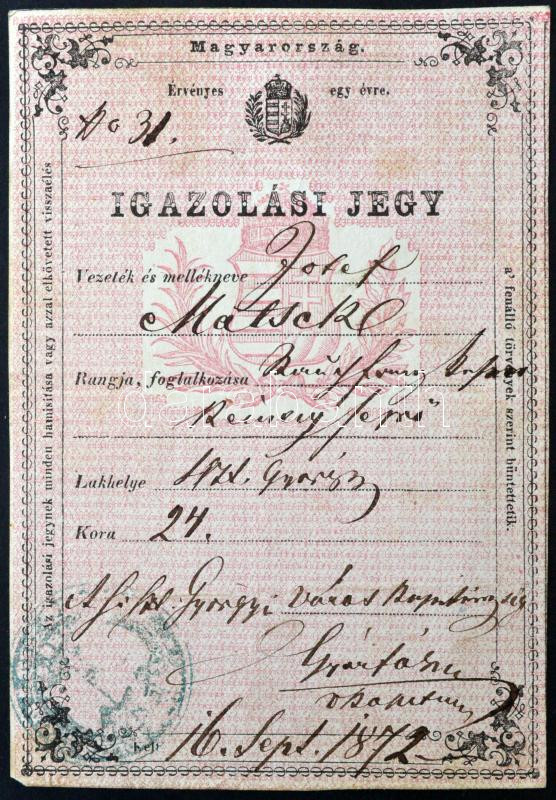 Magyarország.
Érvényes egy évre.
No 31.
IGAZOLÁSI JEGY
Vezeték és mellékneve Josef
Matscko
Rangja, foglalkozása
Kémény seprő
Lakhelye Szt. György
Kora 24.
Györgyi város
kelt 16. Sept. 1872
Az igazolási jegynek minden hamisítása vagy azzal elkövetett visszaélés
a' fenálló törvények szerint büntettetik.